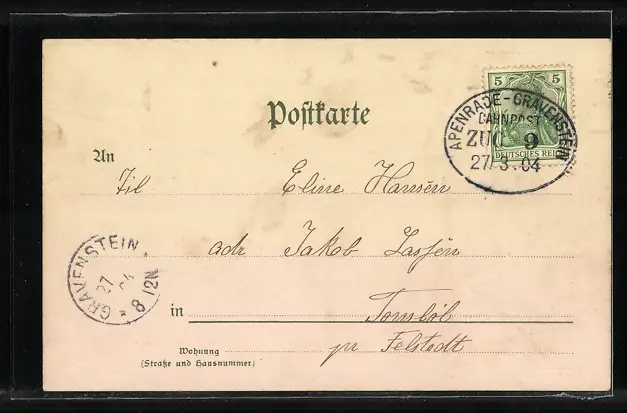 5 5
DEUTSCHES REICH
APENRADE-GRAVENSTEIN
BAHNPOST
ZUG 9
27/3.04
Postkarte
An
Til Eline Hansen
adr Jakob Lassen
GRAVENSTEIN
27
04
* 8 12N
in Tombøl
Wohnung
(Straße und Hausnummer)
pr Felstedt